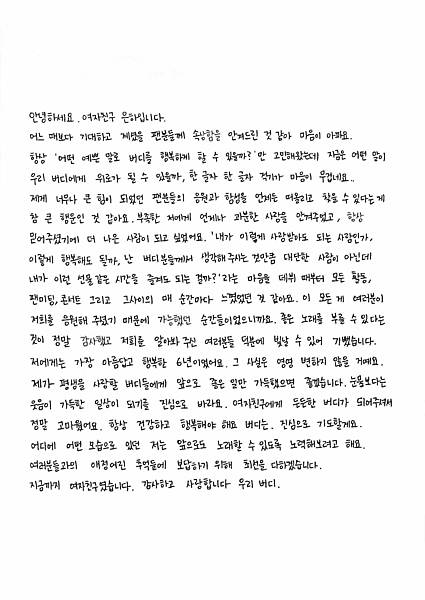 안녕하세요. 여자친구 은하입니다.
어느 때보다 기대하고 계셨을 팬분들께 속상함을 안겨드린 것 같아 마음이 아파요.
항상 '어떤 예쁜 말로 버디를 행복하게 할 수 있을까?'만 고민해왔는데 지금은 어떤 말이
우리 버디에게 위로가 될 수 있을까, 한 글자 한 글자 적기가 마음이 무겁네요..
제게 너무나 큰 힘이 되었던 팬분들의 응원과 함성을 언제든 떠올리고 찾을 수 있다는게
참 큰 행운인 것 같아요. 부족한 저에게 언제나 과분한 사랑을 안겨주었고, 항상
믿어주셨기에 더 나은 사람이 되고 싶었어요. '내가 이렇게 사랑받아도 되는 사람인가,
이렇게 행복해도 될까, 난 버디분들께서 생각해주시는것만큼 대단한 사람이 아닌데
내가 이런 선물같은 시간을 즐겨도 되는 걸까?'라는 마음을 데뷔 때부터 모든 활동,
팬미팅, 콘서트 그리고 그사이의 매 순간마다 느꼈었던 것 같아요. 이 모든 게 여러분이
저희를 응원해 주셨기 때문에 가능했던 순간들이었으니까요. 좋은 노래를 부를 수 있다는
것이 정말 감사했고 저희를 알아봐 주신 여러분들 덕분에 빛날 수 있어 기뻤습니다.
저에게는 가장 아름답고 행복한 6년이었어요. 그 사실은 영영 변하지 않을 거예요.
제가 평생을 사랑할 버디들에게 앞으로 좋은 일만 가득했으면 좋겠습니다. 눈물보다는
웃음이 가득한 일상이 되기를 진심으로 바라요. 여자친구에게 든든한 버디가 되어주셔서
정말 고마웠어요. 항상 건강하고 행복해야 해요 버디는. 진심으로 기도할게요.
어디에 어떤 모습으로 있던 저는 앞으로도 노래할 수 있도록 노력해보려고 해요.
여러분들과의 애정어린 추억들에 보답하기 위해 최선을 다하겠습니다.
지금까지 여자친구였습니다. 감사하고 사랑합니다 우리 버디.